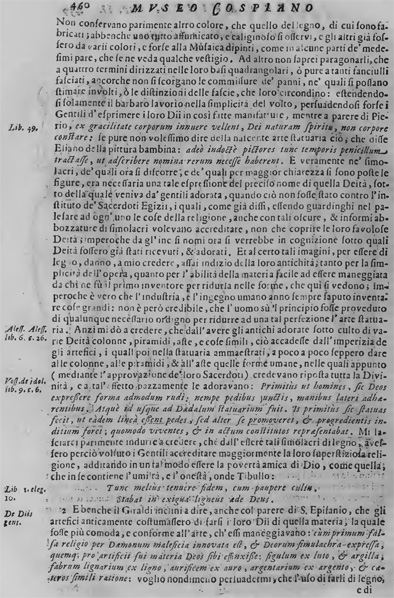 460 MVSEO COSPIANO
Non conservano parimente altro colore, che quello del legno, di cui sono fa-
bricati; abbenche uno tutto affumicato, e caliginoso si osservi, e gli altri già fos-
sero da varii colori, e forse alla Mosaica dipinti, come in alcune parti de' mede-
simi pare, che se ne veda qualche vestigio. Ad altro non saprei paragonarli, che
a quattro termini dirizzati nelle loro basi quadrangolari, ò pure a tanti fanciulli
fasciati, ancorche non si scorgano le commissure de' panni, ne' quali si possano
stimare involti, ò le distinzioni delle fascie, che loro circondino: estendendo-
si solamente il barbaro lavorio nella simplicità del volto, persuadendosi forse i
Gentili d'esprimere i loro Dii in così fatte manifatture, mentre a parere di Pie-
Lib. 49. rio, ex gracilitate corporum innuere vellent, Dei naturam spiritu, non corpore
constare: se pure non volessimo dire della nascente arte statuaria ciò, che disse
Eliano della pittura bambina: adeò indoctè pictores tunc temporis penicillum
tractasse, ut adscribere nomina rerum necesse haberent. E veramente ne' simo-
lacri, de' quali ora si discorre, e de' quali per maggior chiarezza si sono poste le
figure, era necessaria una tale espressione del preciso nome di quella Deità, sot-
to della quale veniva da' gentili adorata, quando ciò non fosse stato contro l'in-
stituto de' Sacerdoti Egizii, i quali, come già dissi, essendo guardinghi nel pa-
lesare ad ogn' uno le cose della religione, anche con tali oscure, & informi ab-
bozzature di simolacri volevano accreditare, non che coprire le loro favolose
Deità: imperoche da gl' inesi nomi ora si verrebbe in cognizione sotto quali
Deità fossero già stati ricevuti, & adorati. Et al certo tali imagini, per essere di
legno, danno, a mio credere, assai indizio della loro antichità; tanto per la sim-
plicità dell'opera, quanto per l'abilità della materia facile ad essere maneggiata
da chi ne fù il primo inventore per ridurla nelle forme, che qui si vedono; im-
peroche è vero che l'industria, e l'ingegno umano anno sempre saputo inventa-
re cose grandi: non è però credibile, che l'uomo sù'l principio fosse proveduto
di qualunque necessario ordigno per ridurre ad una tal perfezione l'arte statua-
Aless. Aless. ria. Anzi mi dò a credere, che dall'avere gli antichi adorate sotto culto di va-
lib. 6. c. 26. rie Deità colonne, piramidi, aste, e cose simili, ciò accadesse dall'imperizia de
gli artefici, i quali poi nella statuaria ammaestrati, a poco a poco seppero dare
alle colonne, alle piramidi, & all'aste quelle forme umane, nelle quali appunto
(mediante l'approvazione de' loro Sacerdoti) credevano ridotta essere la Divi-
Voss. de idol. nità, e a tal' effetto pazzamente le adoravano: Primitùs ut homines, sic Deos
lib. 9. c. 6. expressere forma admodum rudi: nempe pedibus junctis, manibus lateri adhæ-
rentibus. Atque id usque ad Dædalum statuarium fuit. Is primitùs sic statuas
fecit, ut eadem lineâ essent pedes, sed alter se promoveret, & progredientis in-
ditium foret; quomodo veventes, & in actum constitutos repræsentabat. Mi la-
scierei parimente indurre a credere, che dall'essere tali simolacri di legno, aves-
sero perciò volsuto i Gentili accreditare maggiormente la loro superstiziosa reli-
gione, additando in un tal modo essere la povertà amica di Dio, come quella,
che in se contiene l'umiltà, e l'onestà, onde Tibullo:
Lib 1. eleg. Tunc meliùs tenuêre fidem, cum paupere cultu,
10. Stabat in exiguâ ligneus æde Deus.
De Diis 2 E benche il Giraldi inclini a dire, anche col parere di S. Epifanio, che gli
gent. artefici anticamente costumassero di farsi i loro Dii di quella materia, la quale
fosse più comoda, e conforme all'arte, ch'essi maneggiavano: cùm primùm fal-
sa religio per Dæmonum maleficia innovata est, & Deorum simulachra expressa,
quemq; pro artificii sui materia Deos sibi effinxisse: figulum ex luto, & argilla,
fabrum lignarium ex ligno, aurificem ex auro, argentarium ex argento, & cæ-
teros simili ratione: voglio nondimeno persuadermi, che l'uso di farli di legno,
e di